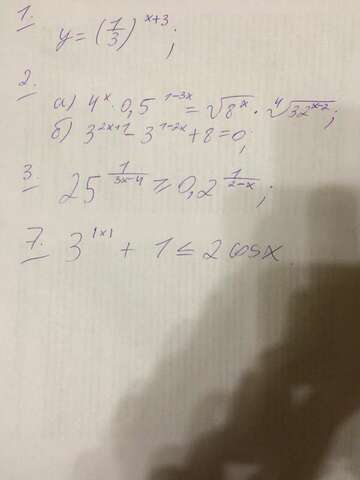 1. y = (1/3)^{x+3};
2. а) 4^x · 0,5^{1-3x} = √(8^x) · ∜(32^{x-2});
б) 3^{2x+1} - 3^{1-2x} + 8 = 0;
3. 25^{1/(3x-4)} ≥ 0,2^{1/(2-x)};
7. 3^{|x|} + 1 ≤ 2 cosx.